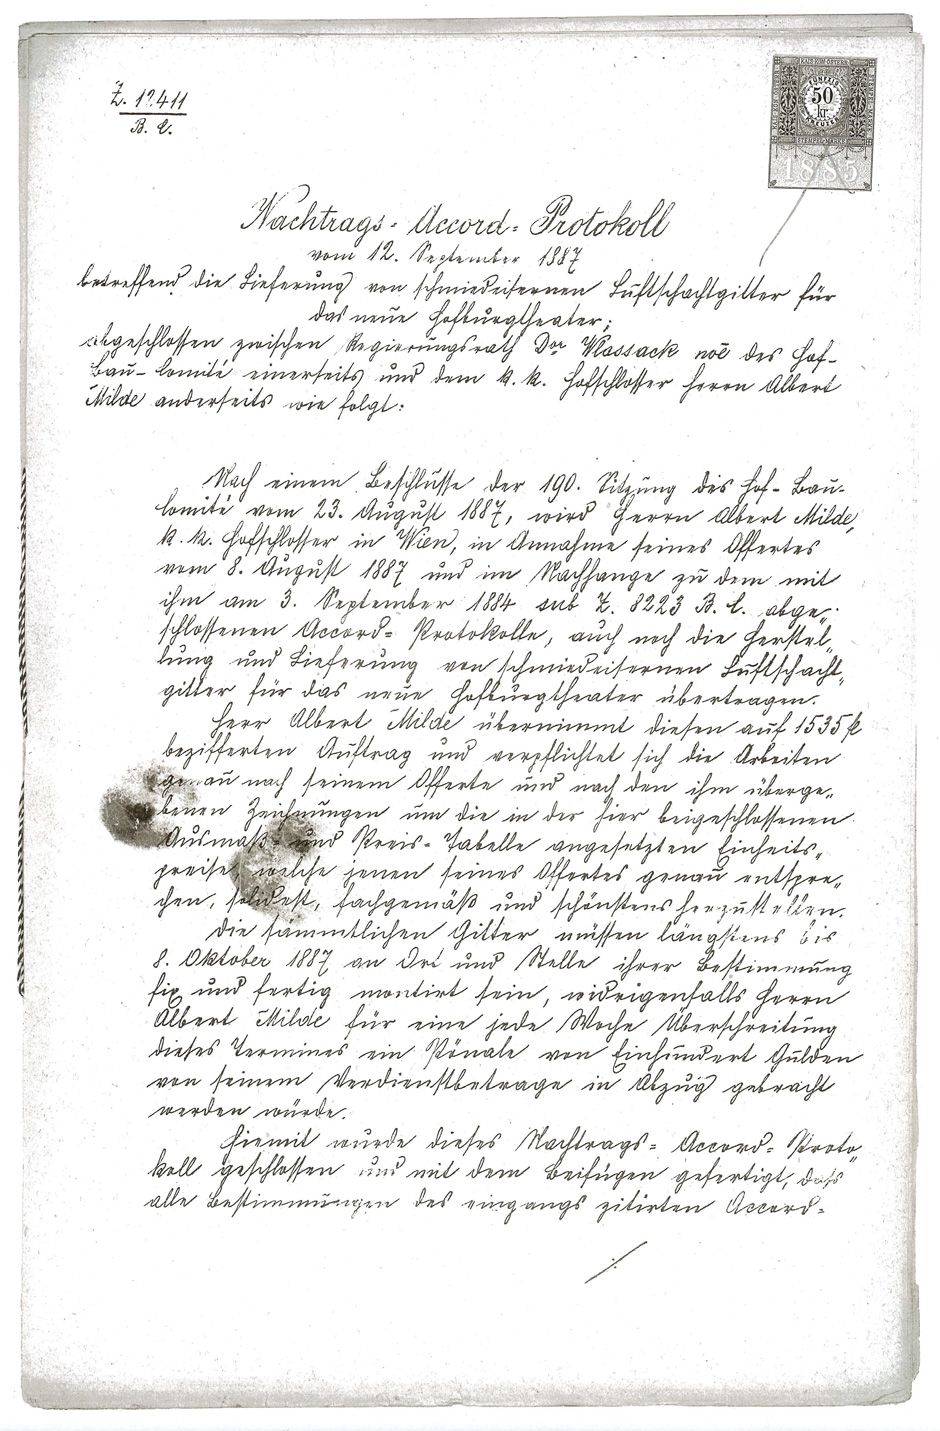 Z. 12411
B. C.
KAIS. KÖN. ÖSTERR.
FÜNFZIG
50
kr.
KREUZER
STEMPEL-MARKE
1885
Nachtrags- Accord- Protokoll
vom 12. September 1887
betreffend die Lieferung von schmiedeisernen Luftschachtgitter für
das neue Hofburgtheater;
abgeschlossen zwischen Regierungsrath Dor Wlassack noe des Hof-
Bau-Comité einerseits und dem k. k. Hofschlosser Herrn Albert
Milde anderseits wie folgt:
Nach einem Beschlusse der 190. Sitzung des Hof- Bau-
Comité vom 23. August 1887, wird Herrn Albert Milde,
k. k. Hofschlosser in Wien, in Annahme seines Offertes
vom 8. August 1887 und im Nachhange zu dem mit
ihm am 3. September 1884 sub Z. 8223 B. C. abge-
schlossenen Accord- Protokolle, auch noch die Herstel-
lung und Lieferung von schmiedeisernen Luftschacht-
gitter für das neue Hofburgtheater übertragen.
Herr Albert Milde übernimmt diesen auf 1535 fl
bezifferten Auftrag und verpflichtet sich die Arbeiten
genau nach seinem Offerte und nach den ihm überge-
benen Zeichnungen um die in der hier beigeschlossenen
Ausmaß- und Preis- Tabelle angesetzten Einheits-
preise, welche jenen seines Offertes genau entspre-
chen, solidest, fachgemäß und schönstens herzustellen.
Die sämmtlichen Gitter müssen längstens bis
8. Oktober 1887 an Ort und Stelle ihrer Bestimmung
fix und fertig montirt sein, widrigenfalls Herrn
Albert Milde für eine jede Woche Überschreitung
dieses Termines ein Pönale von Einhundert Gulden
von seinem Verdienstbetrage in Abzug gebracht
werden würde.
Hiemit wurde dieses Nachtrags- Accord- Proto-
koll geschlossen und mit dem Beifügen gefertigt, dass
alle Bestimmungen des eingangs zitirten Accord-
./.